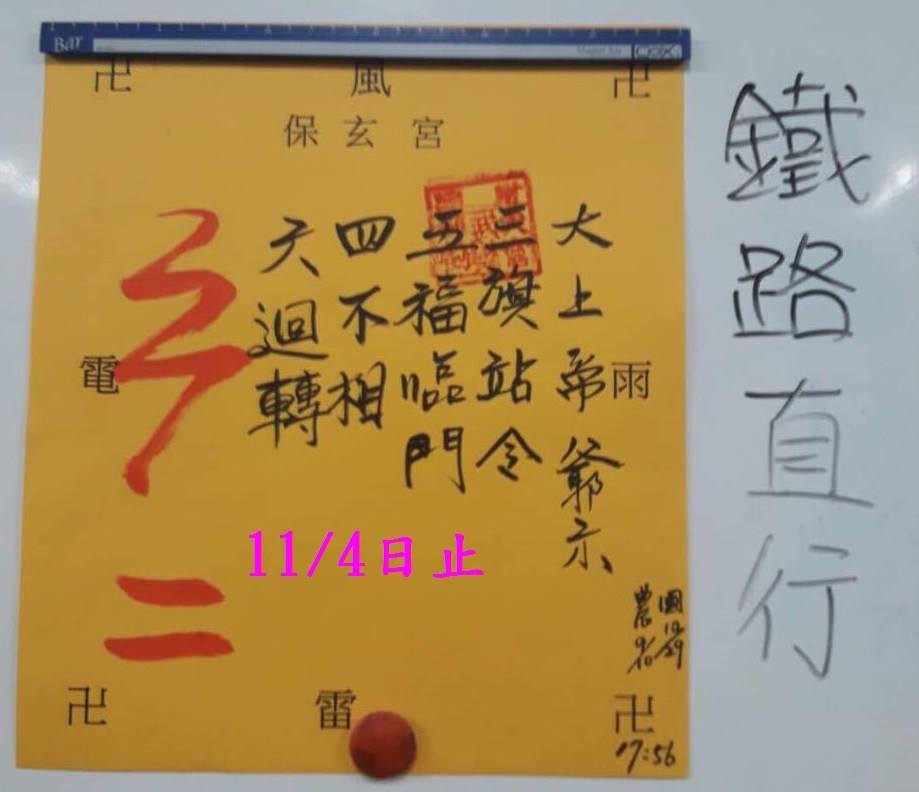 Bar
卍 風 卍
保玄宮
大上帝爺示
三旗站令
五福臨門
四不相
天迴轉
電
雨
二
11/4日止
國10/29
農9/10
卍 雷 卍
17:56
鐵路直行